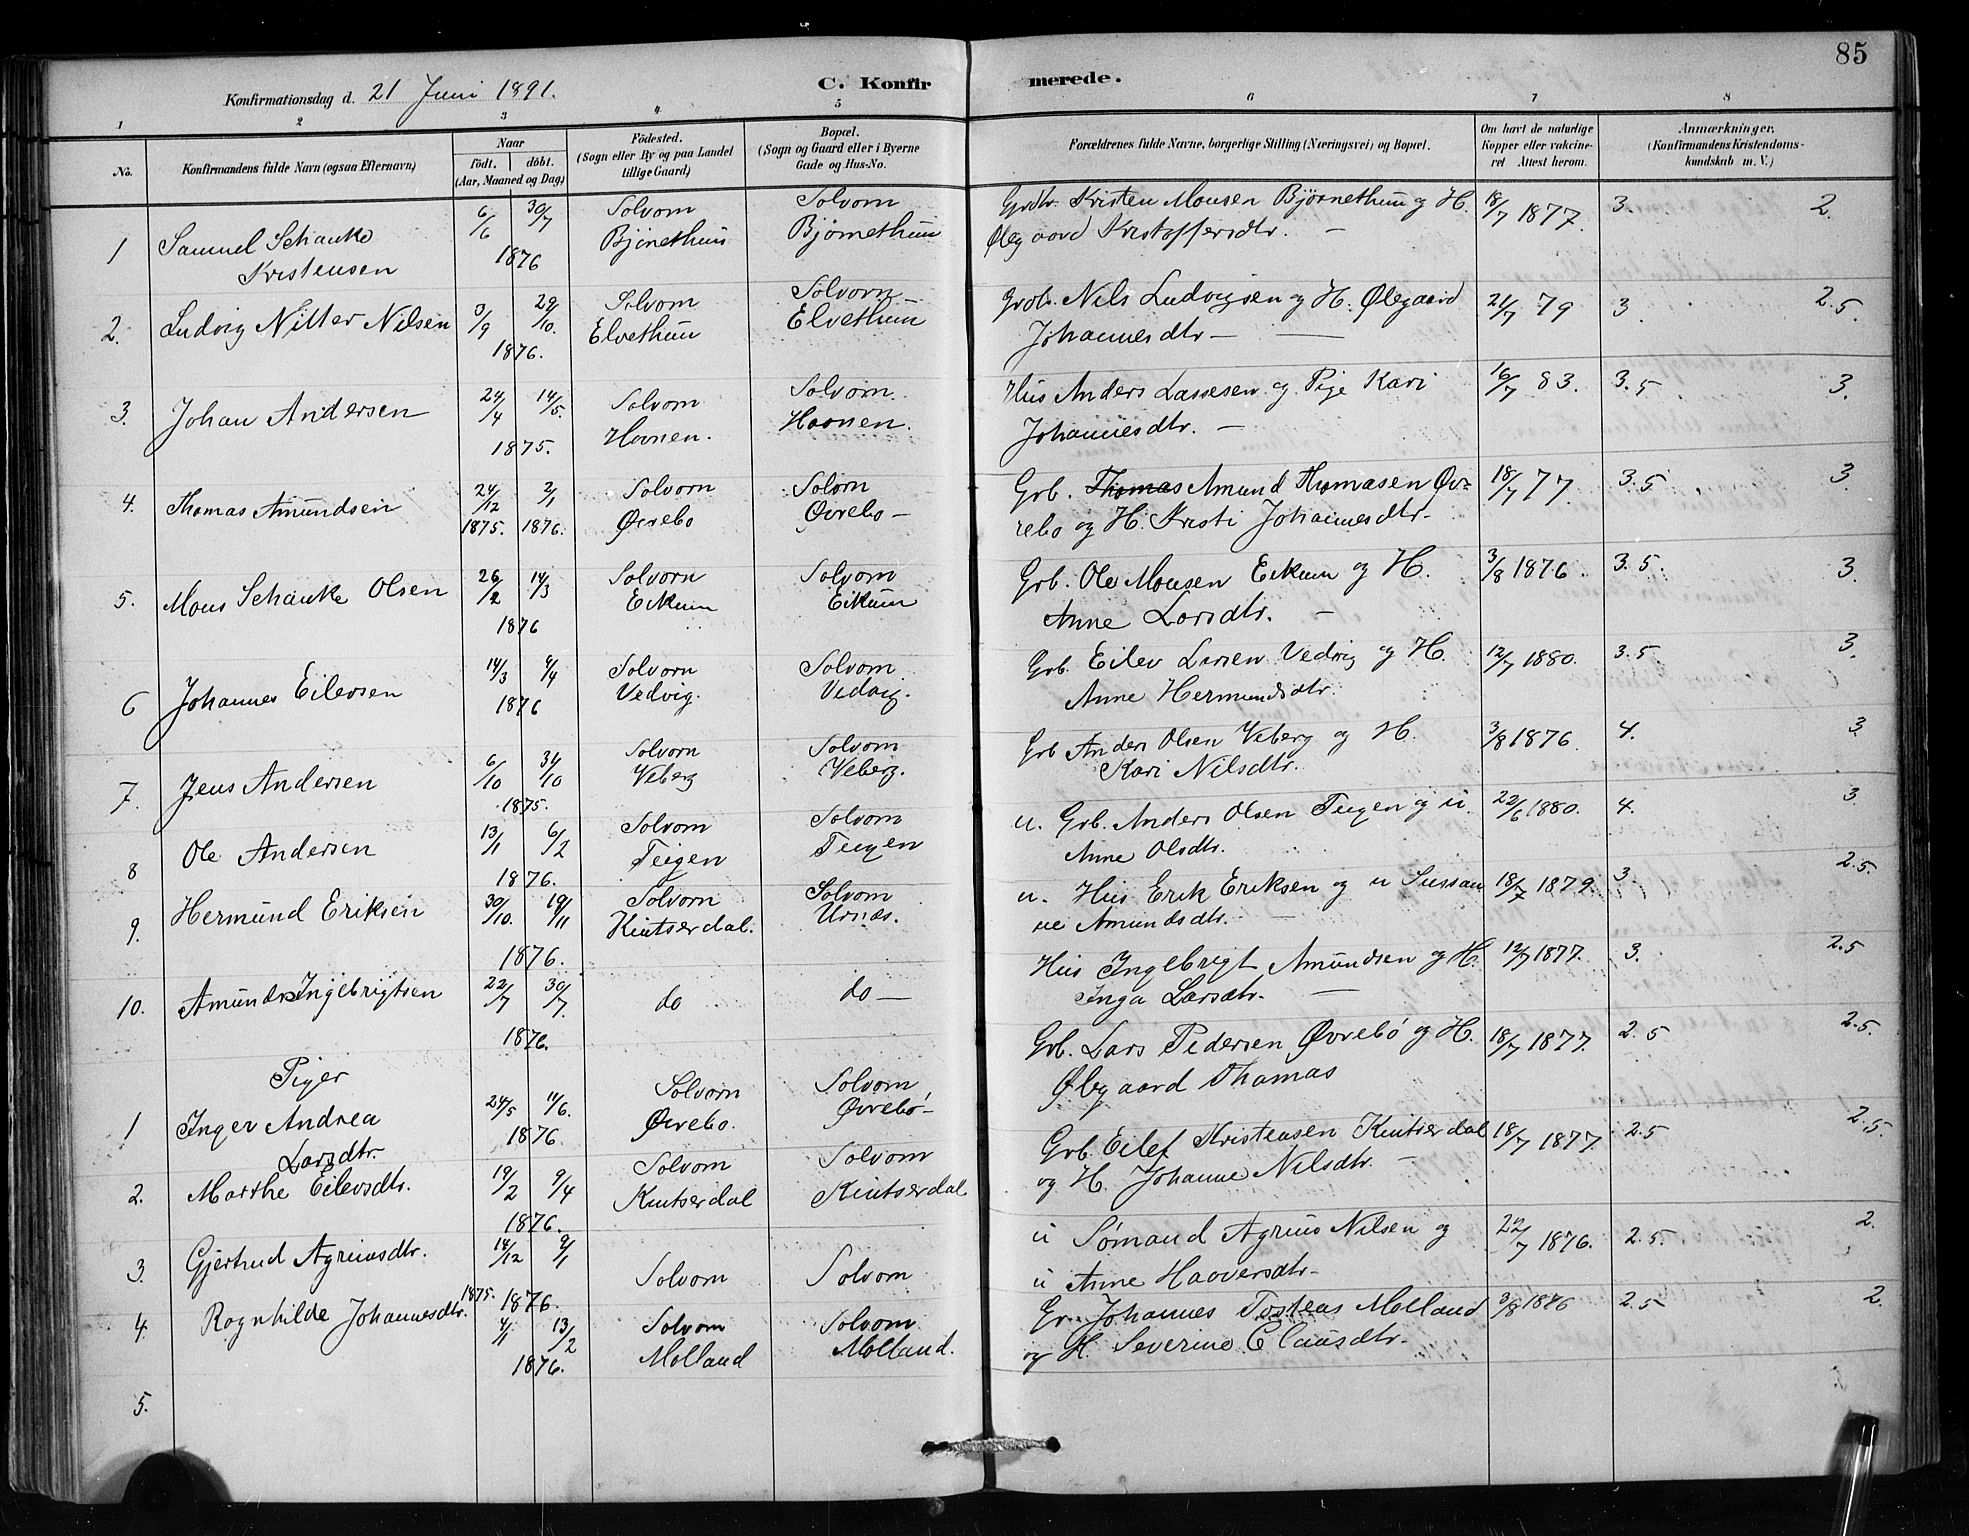 85
Konfirmationsdag d. 21 Juni 1891.
C. Konfir merede.
1 2 3 4 5 6 7 8
No.
Konfirmandens fulde Navn (ogsaa Efternavn).
Naar
födt. döbt.
(Aar, Maaned og Dag)
Födested.
(Sogn eller By og paa Landet
tillige Gaard)
Bopæl.
(Sogn og Gaard eller i Byerne
Gade og Hus-No.
Forældrenes fulde Navne, borgerlige Stilling (Næringsvei) og Bopæl.
Om havt de naturlige
Kopper eller vakcine-
ret Attest herom.
Anmærkninger.
(Konfirmandens Kristendoms-
kundskab m. V.)
1 Samuel Schanke 6/6 30/7 Solvorn Solvorn Grdbr. Kristen Monsen Bjørnethun og H. 18/7 1877. 3. 2.
Kristensen 1876 Bjørnethun Bjørnethun Ølegaard Kristoffersdtr. —
2. Ludvig Nitter Nilsen 3/9 29/10. Solvorn Solvorn Grdb. Nils Ludvigsen og H. Ølegaard 21/7 79 3. 2.5.
1876. Elvethun Elvethun Johannesdtr —
3. Johan Andersen 24/4 14/5. Solvorn Solvorn. Hus Anders Lassesen og Pige Kari 16/7 83. 3.5 3.
1875. Hovnen. Hovnen. Johannesdtr. —
4. Thomas Amundsen 24/12 2/1 Solvorn Solorn Grb. Thomas Amund Thomasen Øv- 18/7 77. 3.5 3.
1875. 1876. Øvrebo Øvrebo — rebo og H. Kristi Johannesdtr.
5. Mons Schanke Olsen 26/2 14/3 Solvorn Solvorn Grb. Ole Monsen Eikum og H. 3/8 1876. 3.5 3.
1876 Eikum Eikum Anne Larsdtr. —
6 Johannes Eilevsen 14/3 9/4 Solvorn Solvorn Grb. Eilev Larsen Vedvig og H. 12/7 1880. 3.5 3.
1876 Vedvig. Vedvig. Anne Hermundsdtr.
7. Jens Andersen 6/10 31/10 Solvorn Solvorn Grb Anders Olsen Veberg og H. 3/8 1876. 4. 3.
1875. Veberg Veberg. Kari Nilsdtr.
8 Ole Andersen 13/1 6/2 Solvorn Solvorn u. Grb. Anders Olsen Teigen og u 22/6 1880. 4. 3
1876. Teigen Teigen Anne Olsdtr.
9. Hermund Eriksen 30/10. 19/11 Solvorn Solvorn u. Hus Erik Eriksen og u Sussan 18/7 1879. 3. 2.5.
1876. Kintserdal. Urnæs. ne Amundsdtr. —
10. Amund Ingebrigtsen 22/7 30/7. do do — Hus Ingebrigt Amundsen og H. 12/7 1877. 3. 2.5
1876. Inga Larsdtr. —
Piger
1 Inger Andrea 24/5 11/6. Solvorn Solvorn Grb. Lars Pedersen Øvrebö og H. 18/7 1877. 2.5 2.5.
Larsdtr. 1876 Øvrebo. Øvrebö — Ølegaard Thomas
2. Marthe Eilevsdtr. 19/2 9/4 Solvorn Solvorn Grb. Eilef Kristensen Kintserdal 18/7 1877. 2.5 2.5.
1876. Kintserdal Kintserdal og H. Johanne Nilsdtr. —
3. Gjertrud Agriusdtr. 14/12 9/1 Solvorn Solvorn u Sømand Agrius Nilsen og 22/7 1876. 2.5. 2.
1875. 1876. u Anne Haaversdtr —
4. Ragnhilde Johannesdtr. 4/1 13/2 Solvorn Solvorn Gr. Johannes Tostens Molland 3/8 1876 2.5 2.
1876. Molland Molland. og H. Severine Clausdtr.
5.